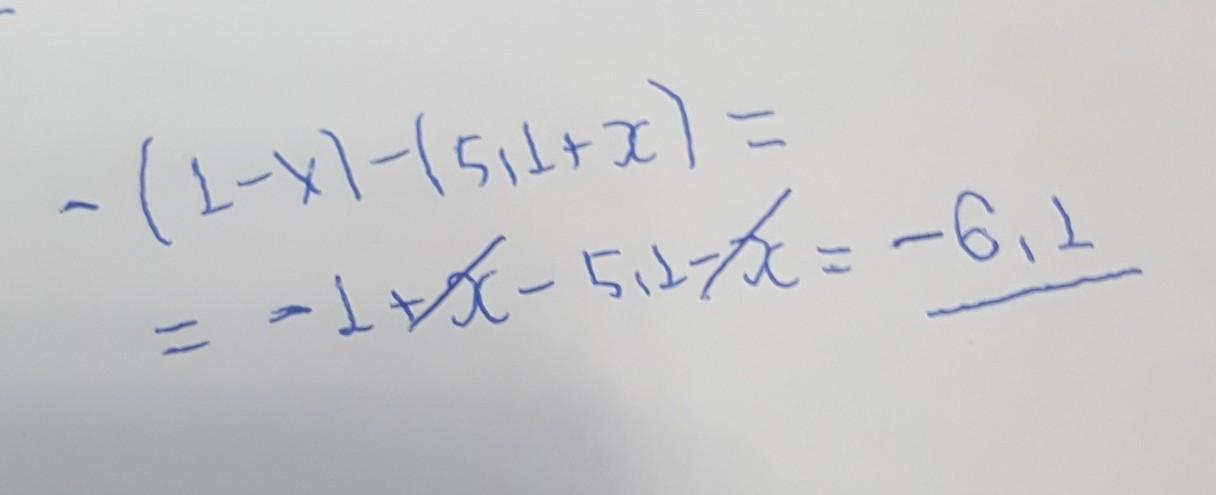 -(1-x)-(5,1+x)=
=-1+x-5,1-x=-6,1